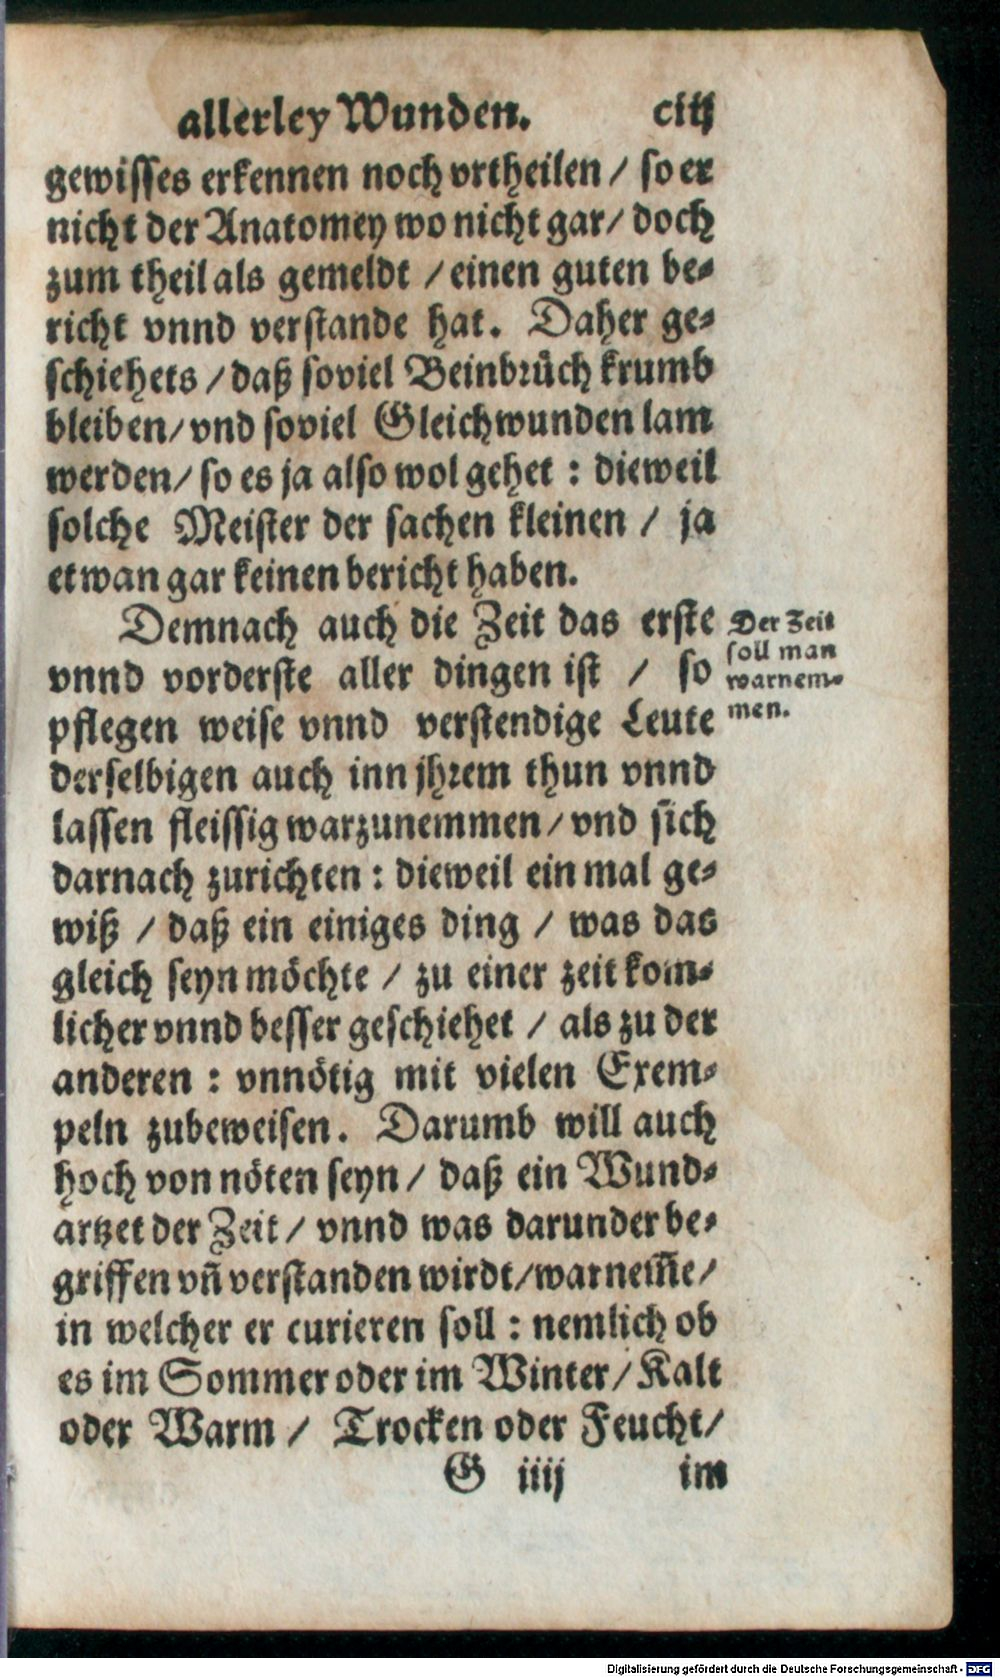 allerley Wunden. ciij
gewisses erkennen noch vrtheilen / so er
nicht der Anatomey wo nicht gar / doch
zum theil als gemeldt / einen guten be-
richt vnnd verstande hat. Daher ge-
schiehets / daß soviel Beinbrüch krumb
bleiben / vnd soviel Gleichwunden lam
werden / so es ja also wol gehet : dieweil
solche Meister der sachen kleinen / ja
etwan gar keinen bericht haben.
Demnach auch die Zeit das erste
vnnd vorderste aller dingen ist / so
pflegen weise vnnd verstendige Leute
derselbigen auch inn jhrem thun vnnd
lassen fleissig warzunemmen / vnd sich
darnach zurichten : dieweil ein mal ge-
wiß / daß ein einiges ding / was das
gleich seyn möchte / zu einer zeit kom-
licher vnnd besser geschiehet / als zu der
anderen : vnnötig mit vielen Exem-
peln zubeweisen. Darumb will auch
hoch von nöten seyn / daß ein Wund-
artzet der Zeit / vnnd was darunder be-
griffen vn̄ verstanden wirdt / warnem̄e /
in welcher er curieren soll : nemlich ob
es im Sommer oder im Winter / Kalt
oder Warm / Trocken oder Feucht /
G iiij im
Der Zeit
soll man
warnem-
men.
Digitalisierung gefördert durch die Deutsche Forschungsgemeinschaft - DFG